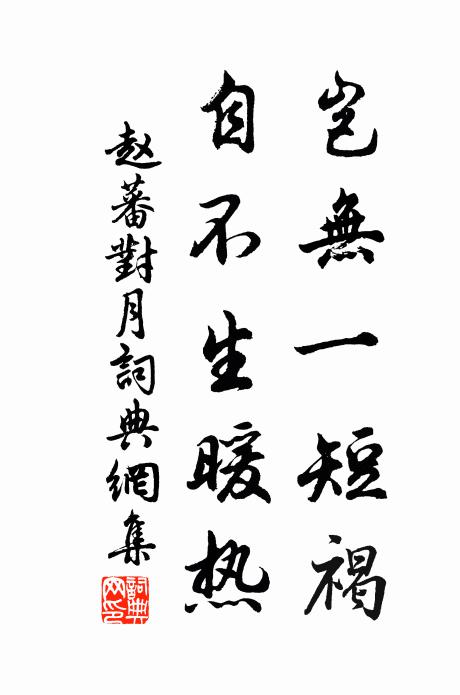 豈無一短褐
自不生暖热
赵蕃對月詞典網集
詞典網印